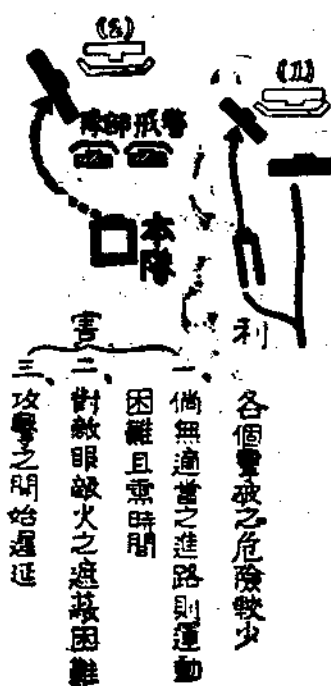 警戒部隊
本隊
利
各個擊破之危險較少
害
一、倘無適當之進路則運動
困難且需時間
二、對敵眼敵火之遮蔽困難
三、攻擊之開始遲延